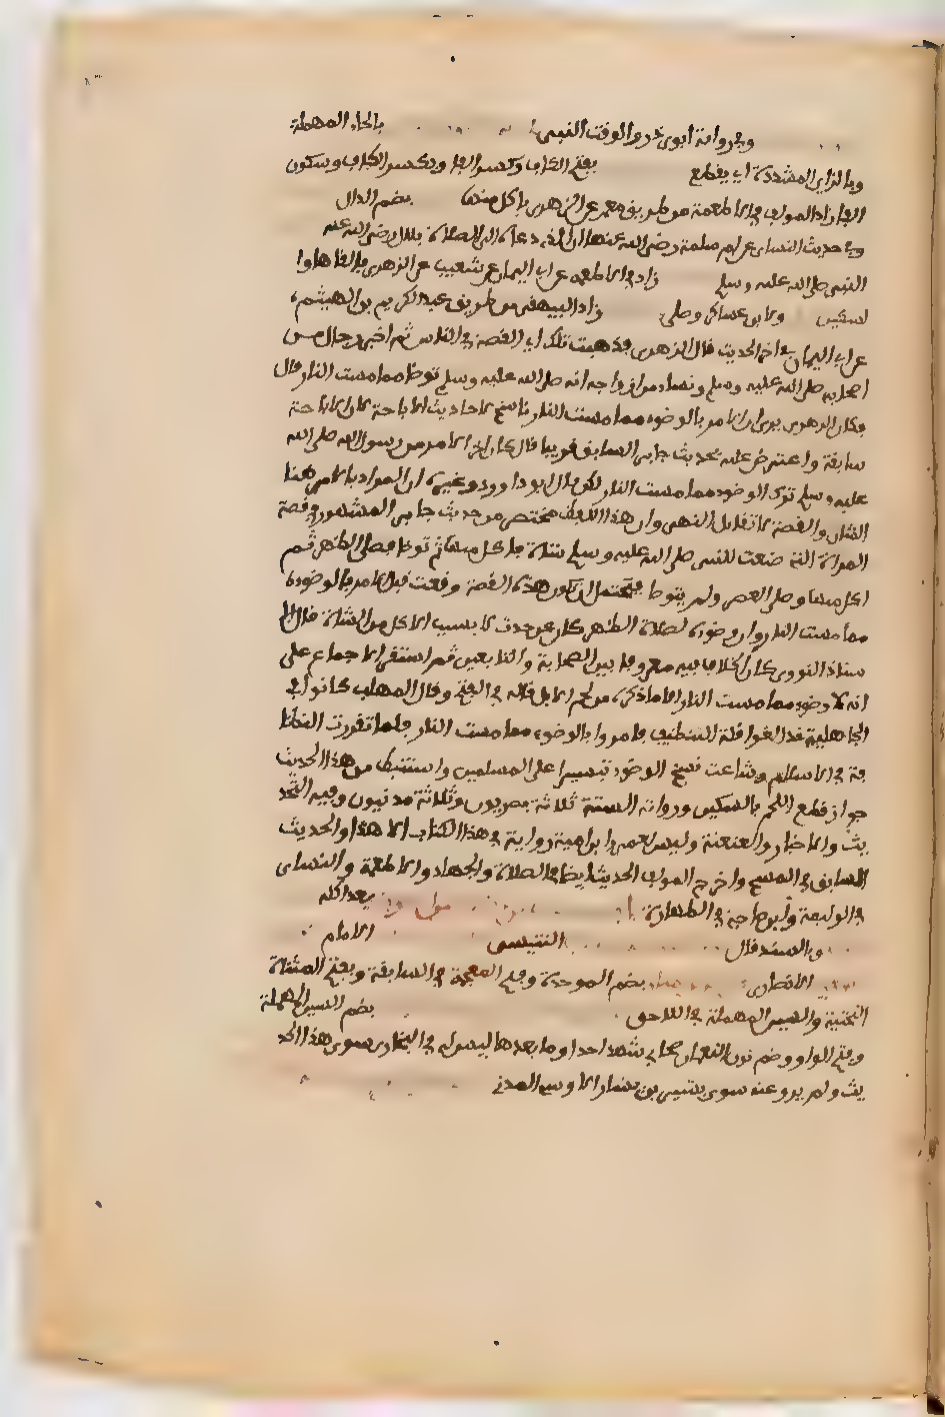 وفي رواية ابوي ذر والوقت النبي بالحاء المهملة
وبالزاي المشددة اي يقطع بفتح الكاف وكسر التاء وبكسر الكاف وسكون
التاء زاد المولف في الاطعمة من طريق معمر عن الزهري ياكل منها بضم الدال
وفي حديث النساي عن ام سلمة رضي الله عنها ان الذي دعاه الى الصلاة بلال رضي الله عنه
النبي صلى الله عليه وسلم زاد في الاطعمة عن ابي اليمان عن شعيب عن الزهري فالقاها و
السكين ولابن عساكر وصلى زاد البيهقي من طريق عبد الكريم بن الهيثم
عن ابي اليمان في اخر الحديث قال الزهري فذهبت تلك اي القصة في الناس ثم اخبر رجال من
اصحابه صلى الله عليه وسلم ونساء من ازواجه انه صلى الله عليه وسلم توضا مما مست النار قال
فكان الزهري يرى ان الامر بالوضوء مما مست النار ناسخ لاحاديث الاباحة لان الاباحة
سابقة واعترض عليه بحديث جابر السابق قريبا قال كان اخر الامرين من رسول الله صلى الله
عليه وسلم ترك الوضوء مما مست النار لكن قال ابو داوود وغيره ان المراد بالامر هنا
الشان والقصة لا مقابل النهي وان هذا اللفظ مختصر من حديث جابر المشهور في قصة
المراة التي صنعت للنبي صلى الله عليه وسلم شاة فاكل منها ثم توضا وصلى الظهر ثم
اكل منها وصلى العصر ولم يتوضا فيحتمل ان تكون هذه القصة وقعت قبل الامر بالوضوء
مما مست النار وان وضوءه لصلاة الظهر كان عن حدث لا بسبب الاكل من الشاة قال الا
ستاذ النووي كان الخلاف فيه معروفا بين الصحابة والتابعين ثم استقر الاجماع على
انه لا وضوء مما مست النار الا ما ذكر من لحم الابل قاله في الفتح وقال المهلب كانوا في
الجاهلية قد الفوا قلة التنظيف فامروا بالوضوء مما مست النار فلما تقررت النظا
فة في الاسلام وشاعت نسخ الوضوء تيسيرا على المسلمين واستنبط من هذا الحديث
جواز قطع اللحم بالسكين ورواته الستة ثلاثة مصريون وثلاثة مدنيون وفيه التحد
يث والاخبار والعنعنة وليس لعمرو بن امية رواية في هذا الكتاب الا هذا والحديث
السابق في المسح واخرج المولف الحديث ايضا في الصلاة والجهاد والاطعمة والنساي
في الوليمة وابن ماجة في الطهارة بعد اكله
وبالسند قال التنيسي الامام
الانصاري بضم الموحدة وفتح المعجمة في السابقة وبفتح المثناة
التحتية والسين المهملة في اللاحق بضم السين المهملة
وفتح الواو وضم نون النعمان صحابي شهد احدا وما بعدها ليس له في البخاري سوى هذا الحد
يث ولم يرو عنه سوى بشير بن يسار الاوسي المدني